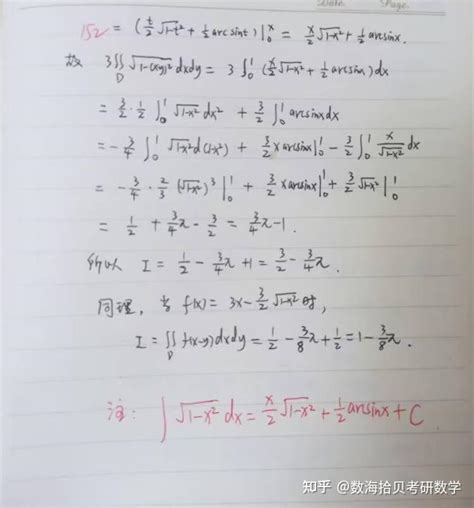 Date. Page.
152 = (t/2 √(1-t²) + 1/2 arcsint)|₀ˣ = x/2 √(1-x²) + 1/2 arcsinx.
故 3∬_D √(1-(x-y)²) dxdy = 3∫₀¹ (x/2 √(1-x²) + 1/2 arcsinx) dx
= 3/2 · 1/2 ∫₀¹ √(1-x²) dx² + 3/2 ∫₀¹ arcsinx dx
= -3/4 ∫₀¹ √(1-x²) d(1-x²) + 3/2 x arcsinx|₀¹ - 3/2 ∫₀¹ x/√(1-x²) dx
= -3/4 · 2/3 (√(1-x²))³|₀¹ + 3/2 x arcsinx|₀¹ + 3/2 √(1-x²)|₀¹
= 1/2 + 3/4 π - 3/2 = 3/4 π - 1.
所以 I = 1/2 - 3/4 π + 1 = 3/2 - 3/4 π.
同理, 当 f(x) = 3x - 3/2 √(1-x²) 时,
I = ∬_D f(x-y) dxdy = 1/2 - 3/8 π + 1/2 = 1 - 3/8 π.
注: ∫ √(1-x²) dx = x/2 √(1-x²) + 1/2 arcsinx + C
知乎 @数海拾贝考研数学